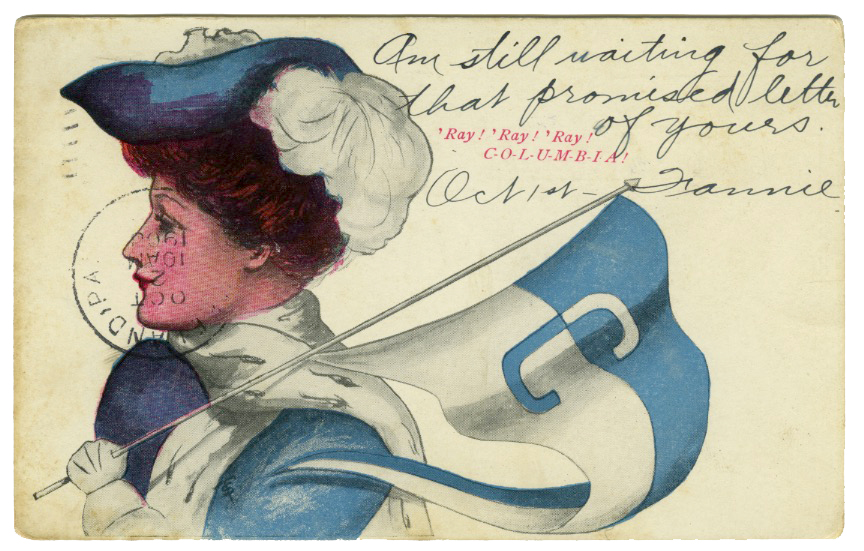 Am still waiting for
that promised letter
of yours.
'Ray! 'Ray! 'Ray!
C-O-L-U-M-B-I-A!
Oct 1st - Fannie
OCT
2
10AM
C